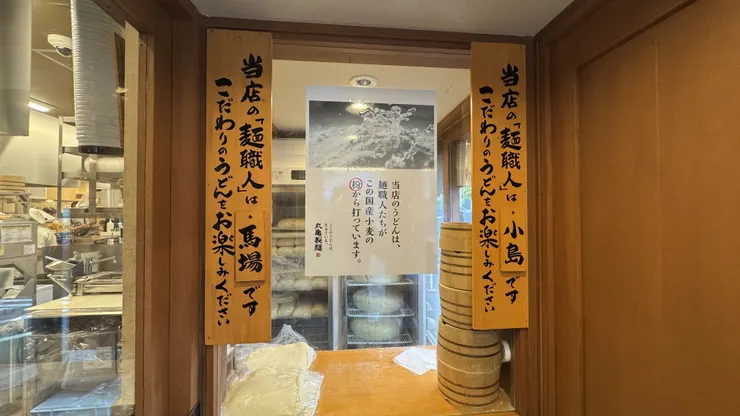 当店の「麺職人」は・小島です
こだわりのうどんをお楽しみください
当店のうどんは、
麺職人たちが
この国産小麦の
粉から打っています。
丸亀製麺
当店の「麺職人」は・馬場です
こだわりのうどんをお楽しみください